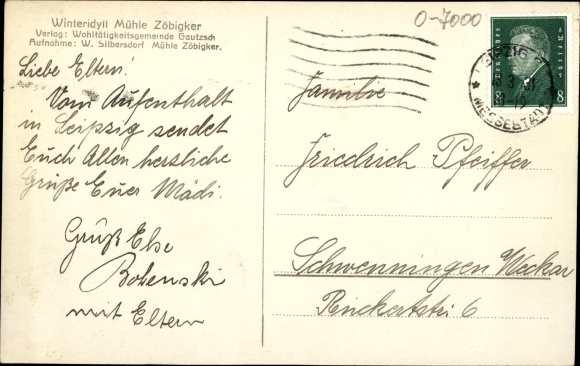 Winteridyll Mühle Zöbigker
Verlag: Wohltätigkeitsgemeinde Gautzsch
Aufnahme: W. Silbersdorf Mühle Zöbigker.
Liebe Eltern!
Vom Aufenthalt
in Leipzig sendet
Euch Allen herzliche
Grüße Euer Mädi.
Gruß Else
Bobenski
mit Eltern
0-7000
LEIPZIG
MESSESTADT
8 8
Familie
Friedrich Pfeiffer
Schwenningen Neckar
6